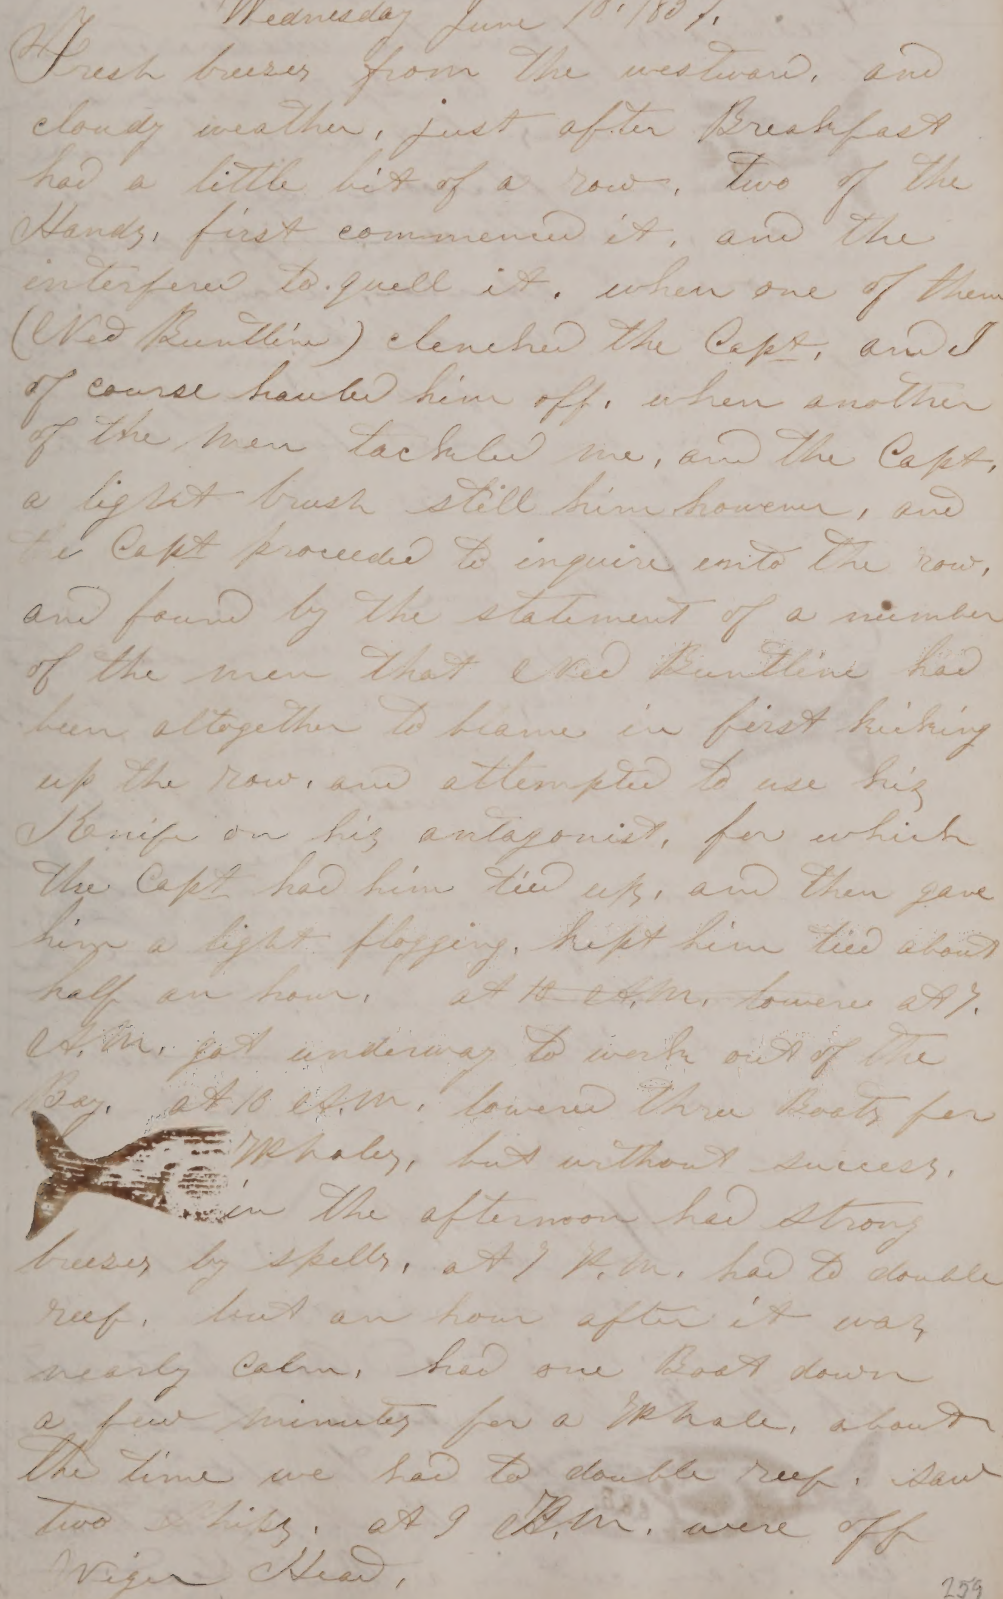 Wednesday June 10. 1857.
Fresh breezes from the westward, and
cloudy weather, just after Breakfast
had a little bit of a row, Two of the
Hands, first commenced it, and the
interfered to quell it, when one of them
(Ned Buntline) clenched the Capt, and I
of course hauled him off, when another
of the men tackled me, and the Capt,
a light brush still him however, and
the Capt proceeded to inquire into the row,
and found by the statement of a number
of the men that Ned Buntline had
been altogether to blame in first kicking
up the row, and attempted to use his
Knife on his antagonist, for which
the Capt had him tied up, and then gave
him a light flogging, kept him tied about
half an hour, at 10 A.M. lowered at 7.
A.M. got underway to work out of the
Bay, at 10 A.M. lowered three Boats for
Whales, but without success,
in the afternoon had strong
breezes by spells, at 7 P.M. had to double
reef, but an hour after it was
nearly calm, had one Boat down
a few minutes for a Whale, about
the time we had to double reef, saw
two Ships, at 9 P.M. were off
Niger Head,
259